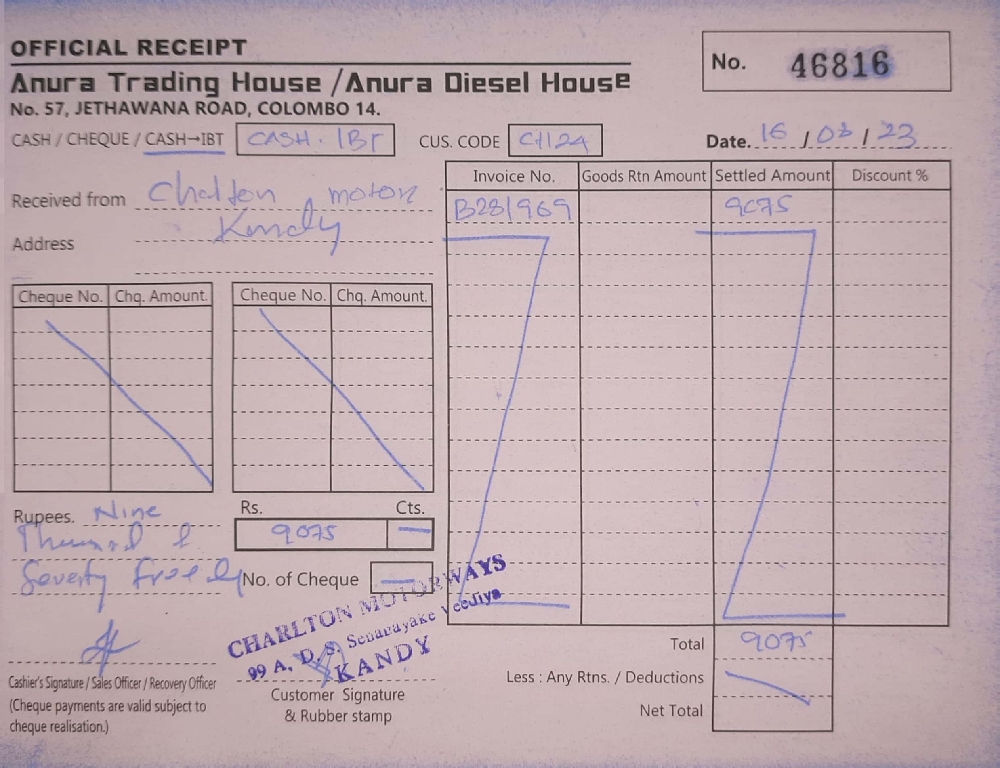 OFFICIAL RECEIPT
Anura Trading House / Anura Diesel House
No. 57, JETHAWANA ROAD, COLOMBO 14.
No. 46816
CASH / CHEQUE / CASH→IBT CASH. IBT CUS. CODE CH124 Date. 16 / 03 / 23
Received from Chalton motor
Address Kandy
Invoice No. Goods Rtn Amount Settled Amount Discount %
B281969 9075
Cheque No. Chq. Amount. Cheque No. Chq. Amount.
Rs. Cts.
Rupees. Nine
9075 —
Thousand &
Seventy five only
No. of Cheque —
CHARLTON MOTORWAYS
99 A, D. S. Senanayake Veediya
KANDY
Total 9075
Less : Any Rtns. / Deductions
Net Total
Cashier's Signature / Sales Officer / Recovery Officer
(Cheque payments are valid subject to
cheque realisation.)
Customer Signature
& Rubber stamp